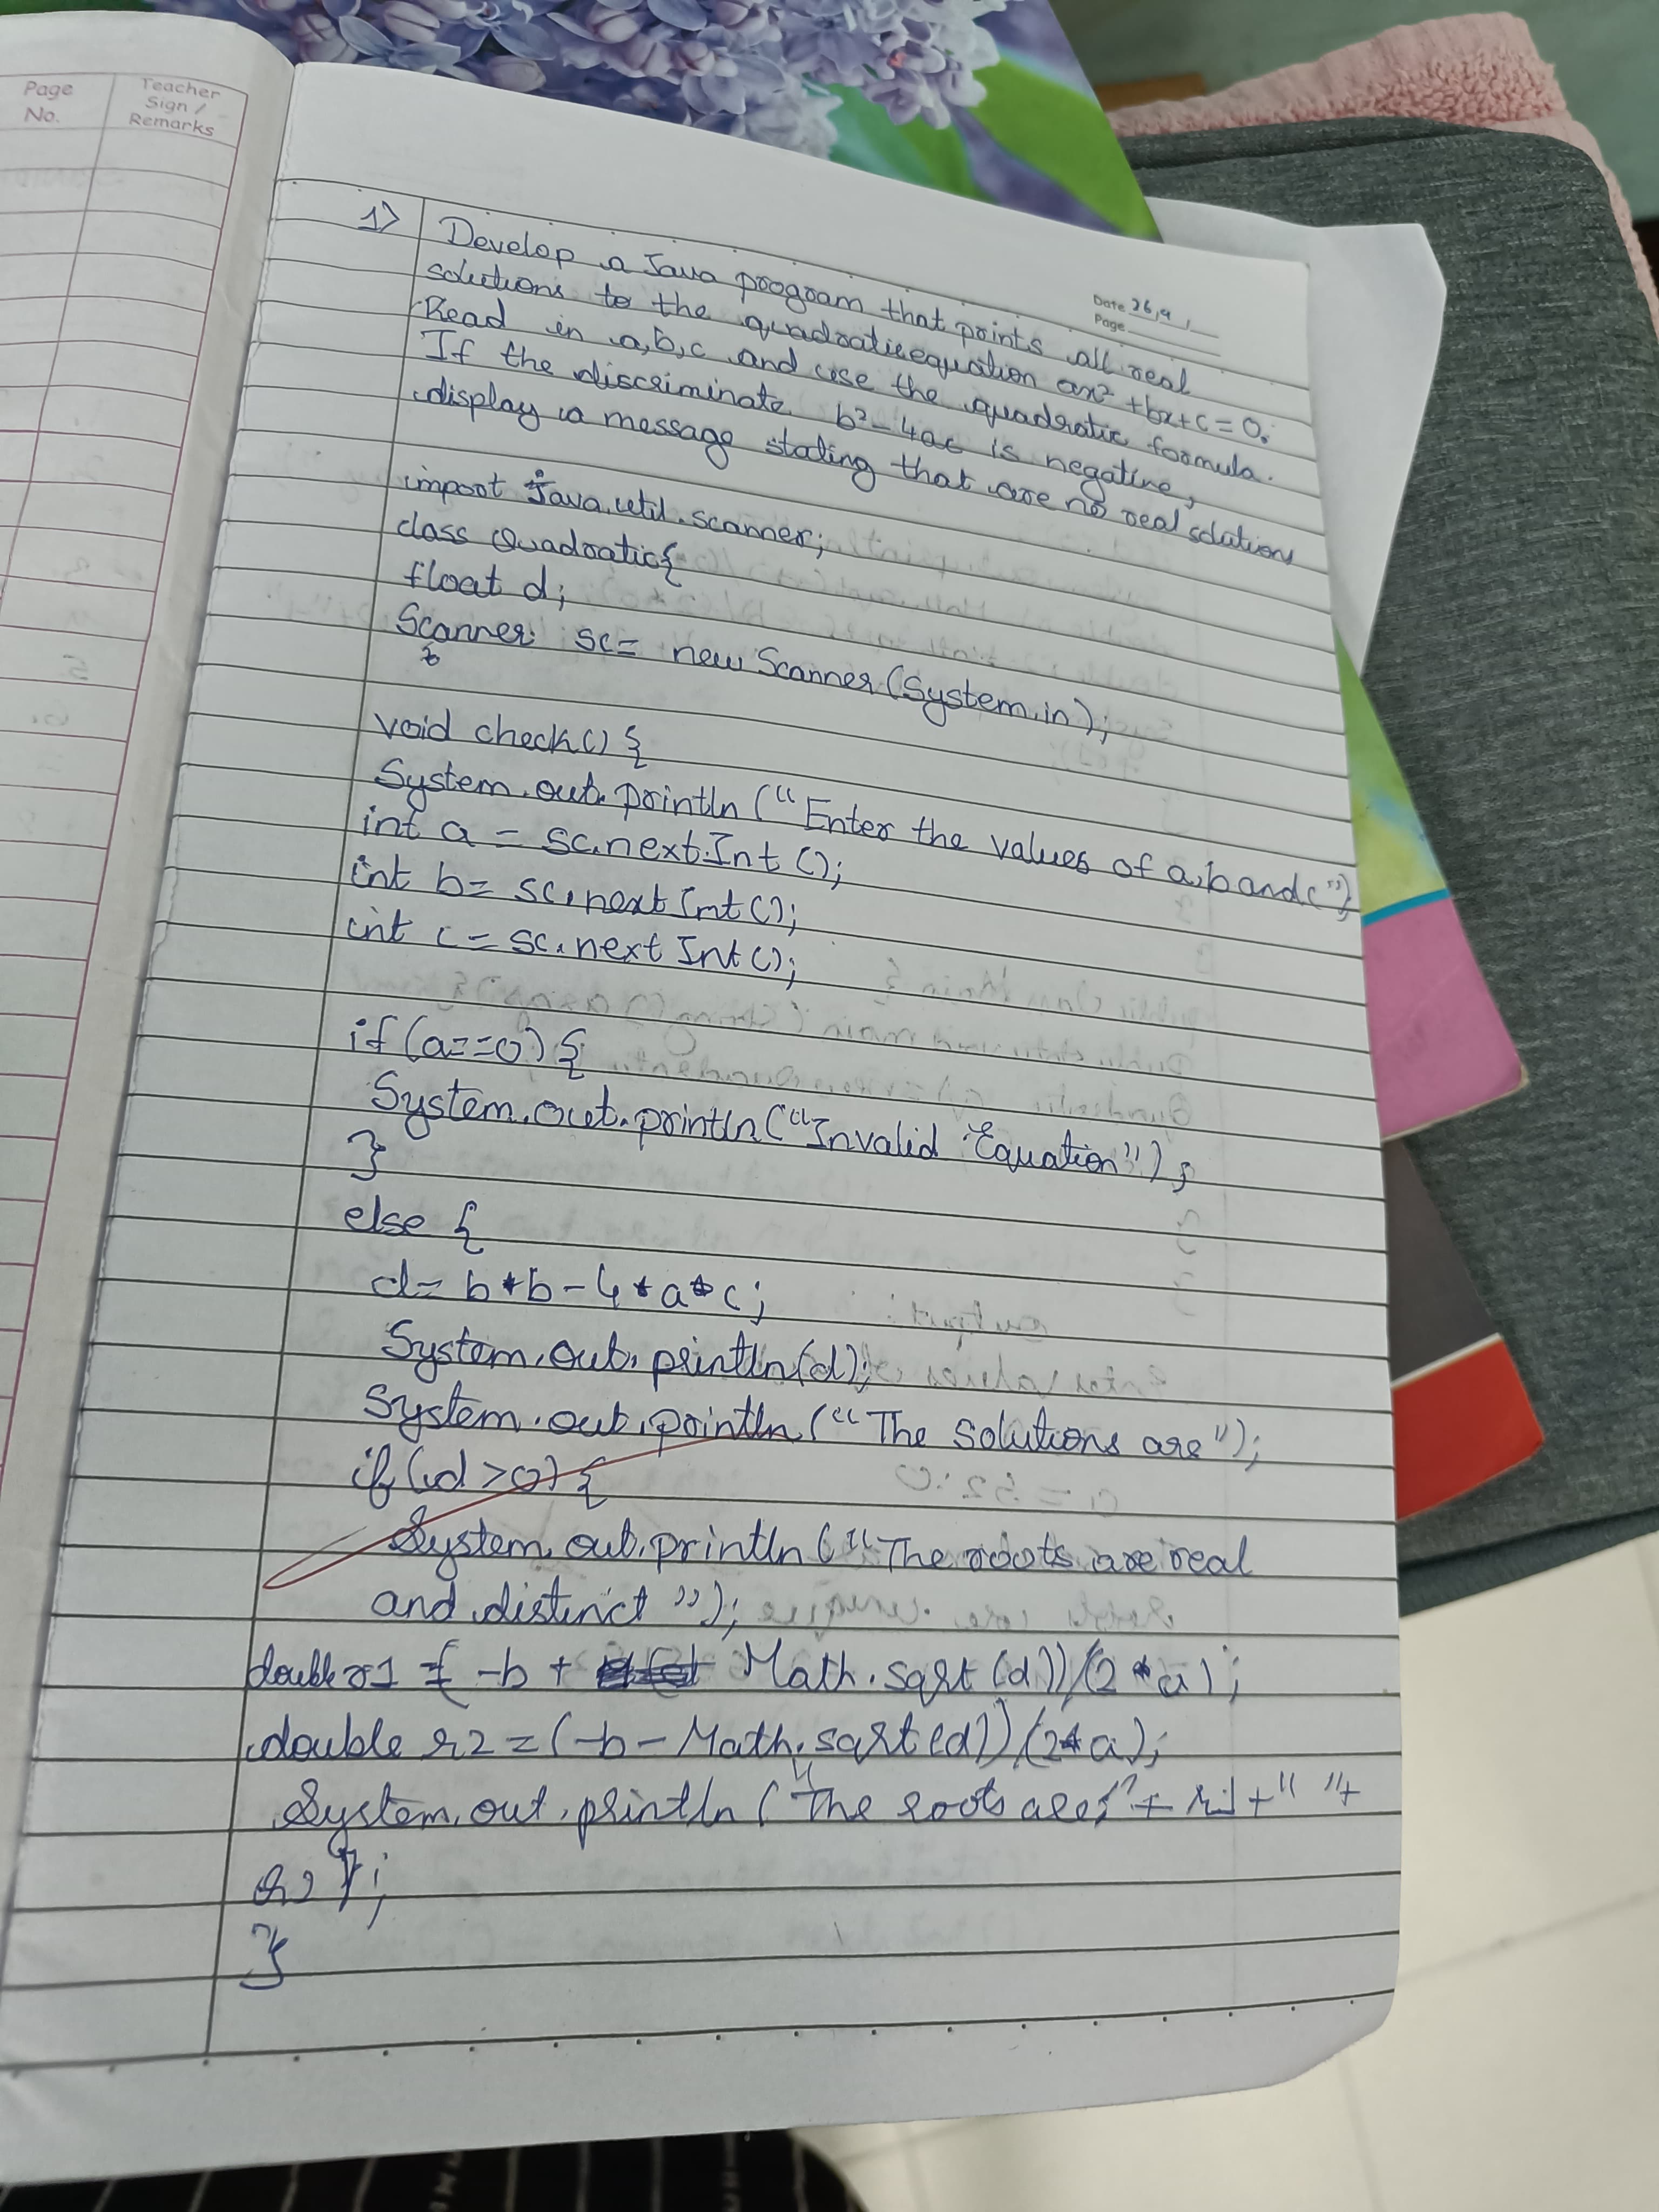 Page No.
Teacher Sign / Remarks
Date 26, 9,
Page
1) Develop a Java program that prints all real
solutions to the quadratic equation ax² + bx + c = 0.
Read in a, b, c and use the quadratic formula.
If the discriminate b² - 4ac is negative,
display a message stating that are no real solutions
import java.util.scanner;
class Quadratic{
float d;
Scanner sc= new Scanner(System.in);
void check() {
System.out.println ("Enter the values of a, b and c");
int a = sc.next.Int ();
int b= sc.next Int ();
int c = sc.next Int ();
if (a==0) {
System.out.println ("Invalid Equation");
}
else {
d= b*b-4*a*c;
System.out.println(d);
System.out.println ("The solutions are");
if (d >0) {
System.out.println ("The roots are real
and distinct ");
double r1 = ( -b + Math.sqrt (d))/(2 * a);
double r2 = (-b - Math.sqrt(d))/(2*a);
System.out.println ("The roots are" + r1 + " " +
r2);
}